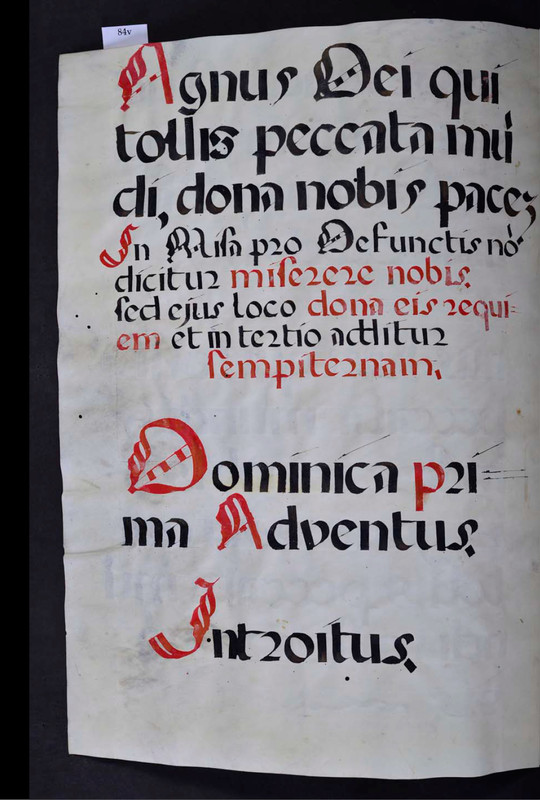 84v
Agnus Dei qui
tollis peccata mū
di, dona nobis pacez
In Missa pro Defunctis nō
dicitur miserere nobis.
sed ejus loco dona eis requi=
em et in tertio additur
sempiternam,
Dominica pri=
ma Adventus.
Introitus.